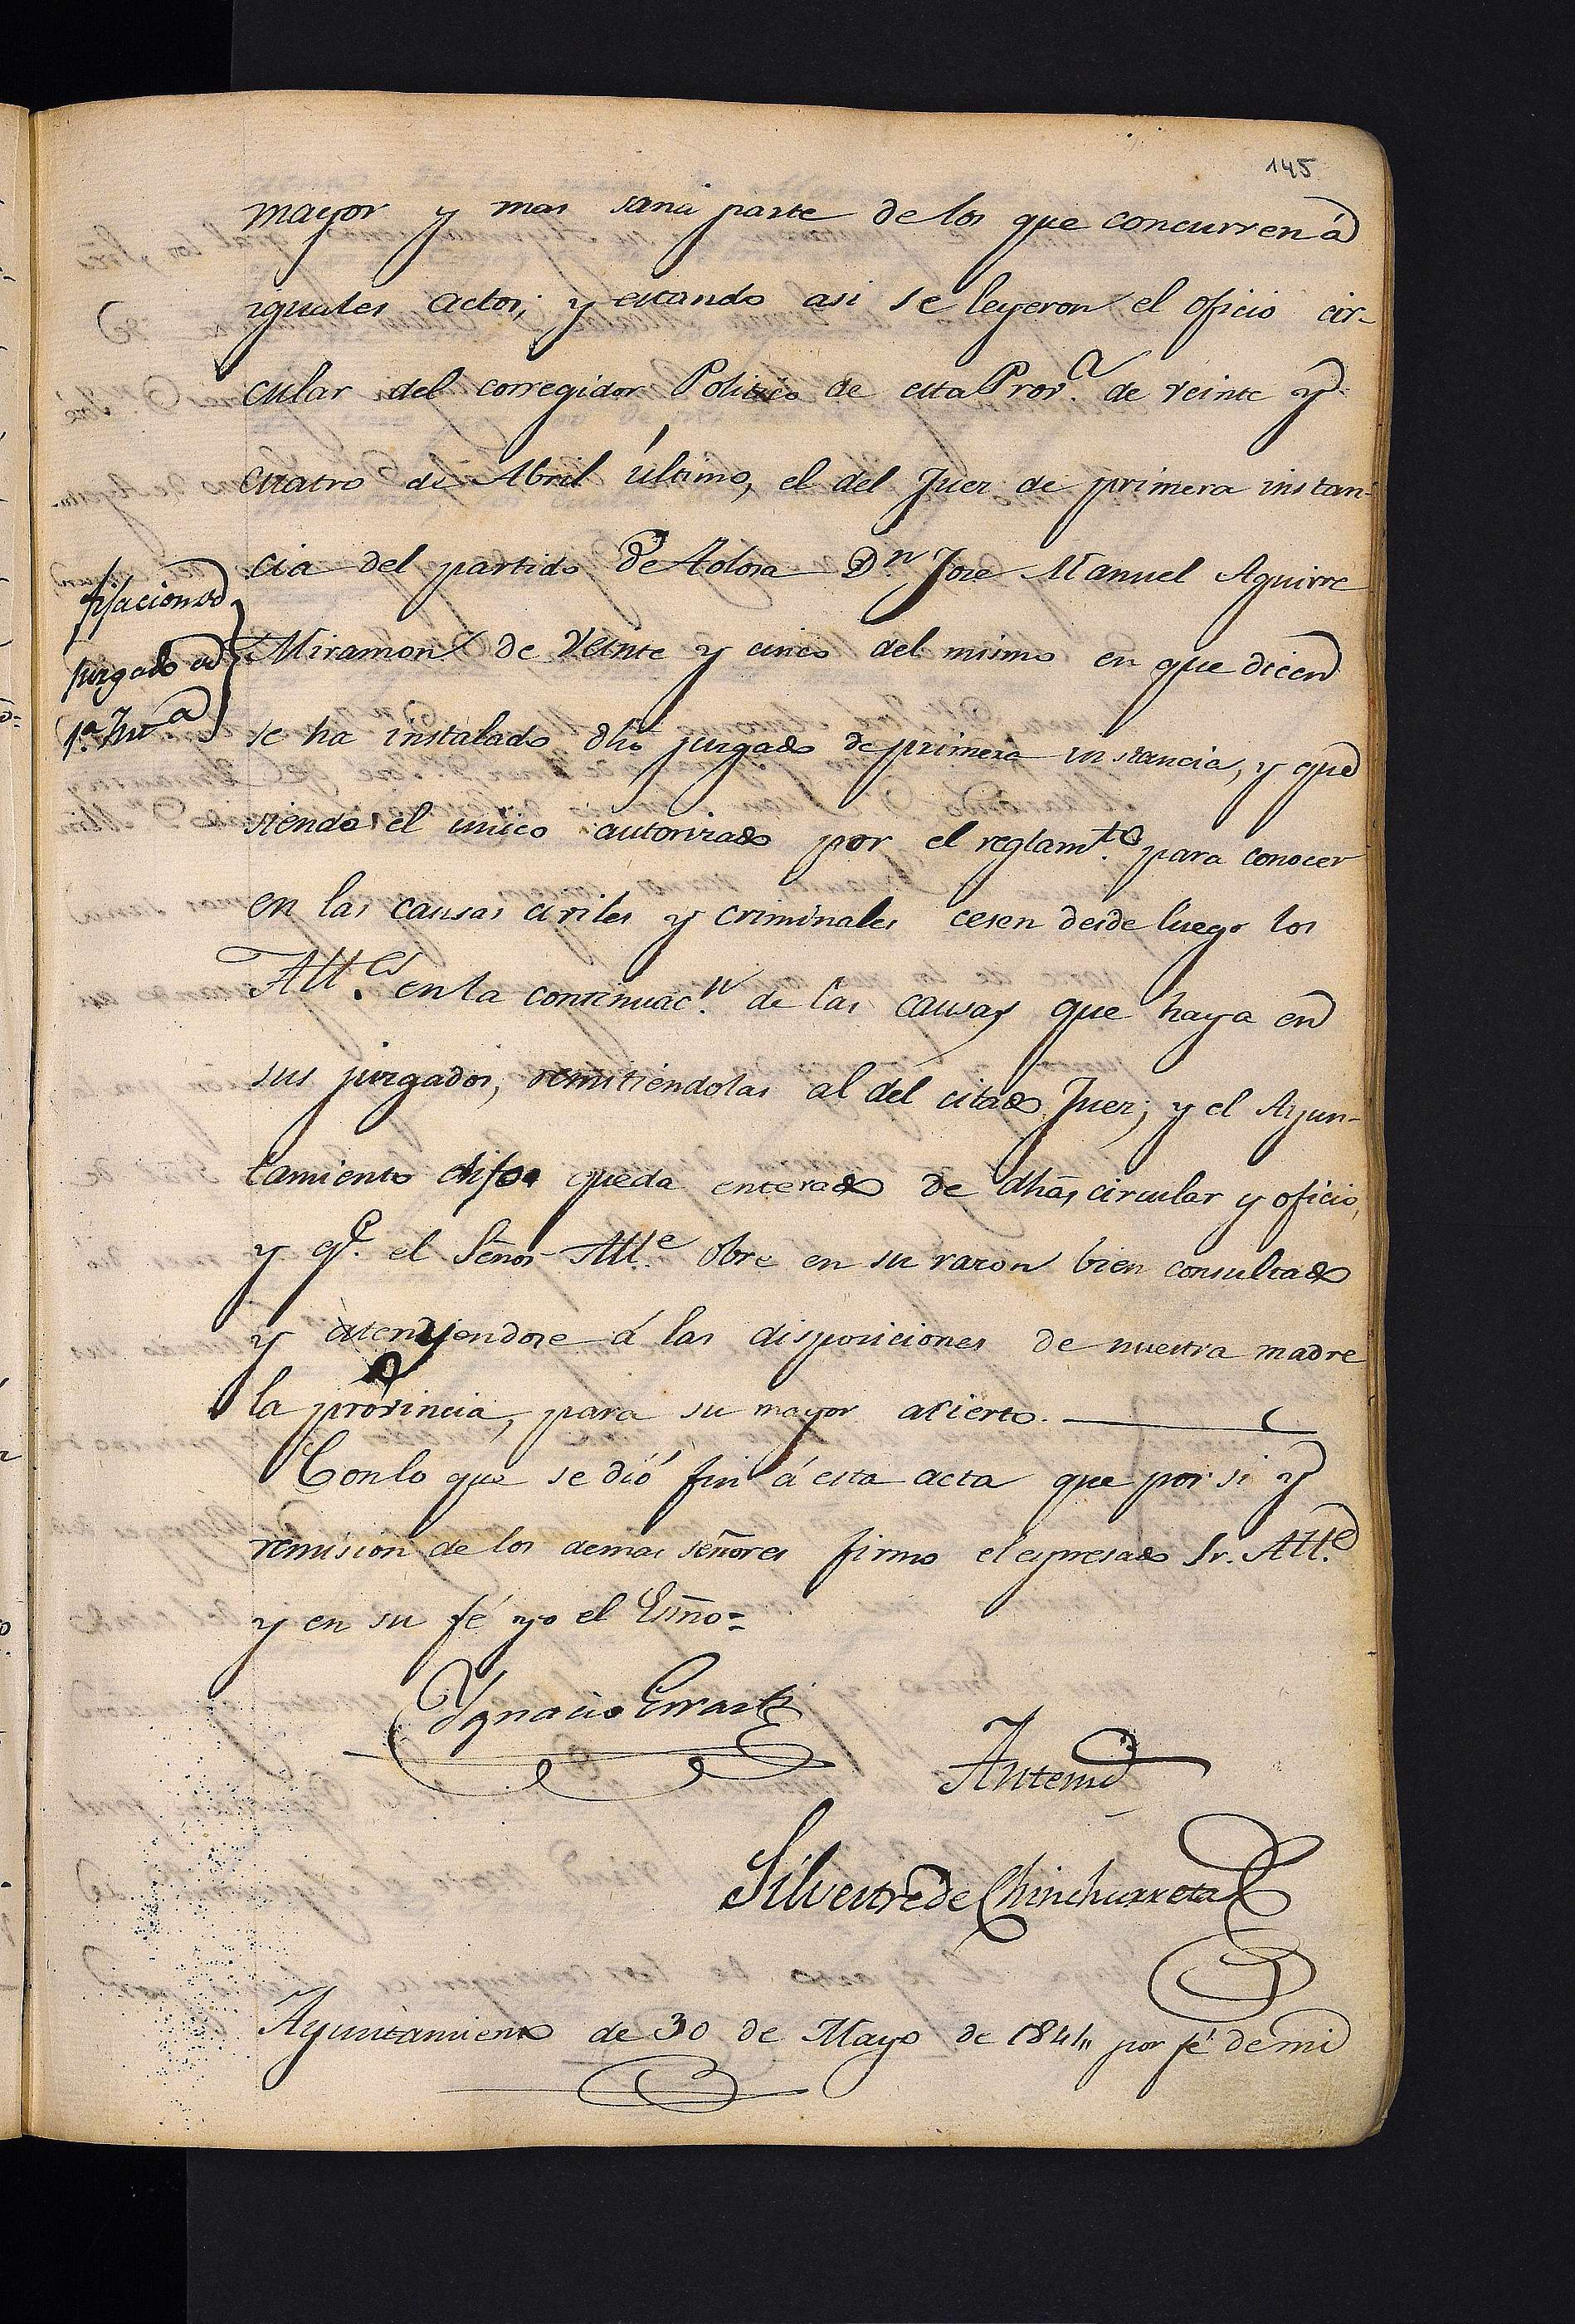 145
mayor y mas sana parte de los que concurren á
iguales actos; y estando asi se leyeron el oficio cir-
cular del corregidor Politico de esta Prov.ª de veinte y
cuatro de Abril último, el del Juez de primera instan-
cia del partido de Tolosa Dn Jose Manuel Aguirre
fijacion del
juzgado de
1.ª Insª
Miramon de veinte y cinco del mismo en que dicen
se ha instalado dho juzgado de primera instancia, y que
siendo el unico autorizado por el reglam.to para conocer
en las causas civiles y criminales cesen desde luego los
All.es en la continuac.n de las causas que haya en
sus juzgados, remitiéndolas al del citado Juez; y el Ayun-
tamiento dijo queda enterado de dhas circular y oficio,
y q.e el Señor All.e obre en su razon bien consultado
y atenyendose á las disposiciones de nuestra madre
la provincia, para su mayor acierto.
Con lo que se dió fin á esta acta que por si y
remision de los demas señores firmo el espresado Sr. All.e
y en su fé yo el Esño=
Ygnacio Errasti
Antemi
Silvestre de Chinchurreta
Ayuntamiento de 30 de Mayo de 1841,, por fé de mi